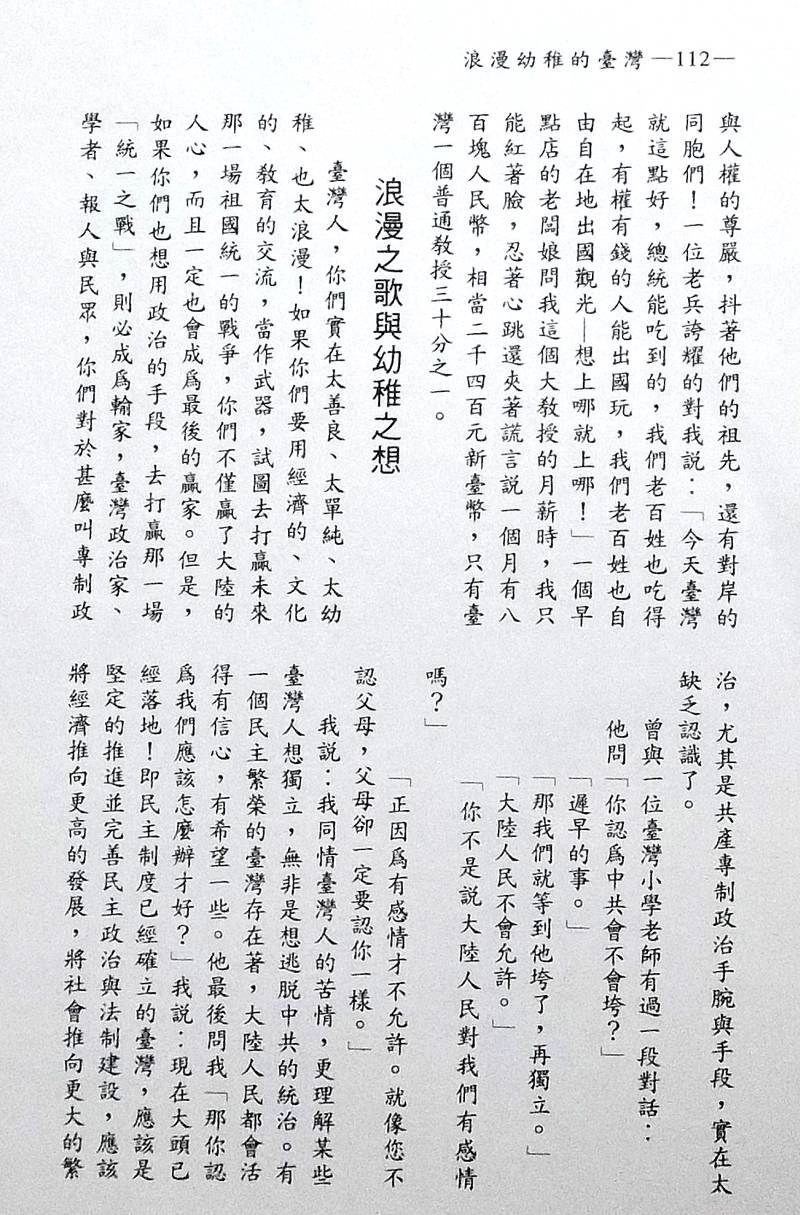 浪漫幼稚的臺灣—112—
與人權的尊嚴，抖著他們的祖先，還有對岸的
同胞們！一位老兵誇耀的對我說：「今天臺灣
就這點好，總統能吃到的，我們老百姓也吃得
起，有權有錢的人能出國玩，我們老百姓也自
由自在地出國觀光—想上哪就上哪！」一個早
點店的老闆娘問我這個大教授的月薪時，我只
能紅著臉，忍著心跳還夾著謊言說一個月有八
百塊人民幣，相當二千四百元新臺幣，只有臺
灣一個普通教授三十分之一。
浪漫之歌與幼稚之想
臺灣人，你們實在太善良、太單純、太幼
稚、也太浪漫！如果你們要用經濟的、文化
的、教育的交流，當作武器，試圖去打贏未來
那一場祖國統一的戰爭，你們不僅贏了大陸的
人心，而且一定也會成爲最後的贏家。但是，
如果你們也想用政治的手段，去打贏那一場
「統一之戰」，則必成爲輸家，臺灣政治家、
學者、報人與民眾，你們對於甚麼叫專制政
治，尤其是共產專制政治手腕與手段，實在太
缺乏認識了。
曾與一位臺灣小學老師有過一段對話：
他問「你認爲中共會不會垮？」
「遲早的事。」
「那我們就等到他垮了，再獨立。」
「大陸人民不會允許。」
「你不是說大陸人民對我們有感情
嗎？」
「正因爲有感情才不允許。就像您不
認父母，父母卻一定要認你一樣。」
我說：我同情臺灣人的苦情，更理解某些
臺灣人想獨立，無非是想逃脫中共的統治。有
一個民主繁榮的臺灣存在著，大陸人民都會活
得有信心，有希望一些。他最後問我「那你認
爲我們應該怎麼辦才好？」我說：現在大頭已
經落地！即民主制度已經確立的臺灣，應該是
堅定的推進並完善民主政治與法制建設，應該
將經濟推向更高的發展，將社會推向更大的繁